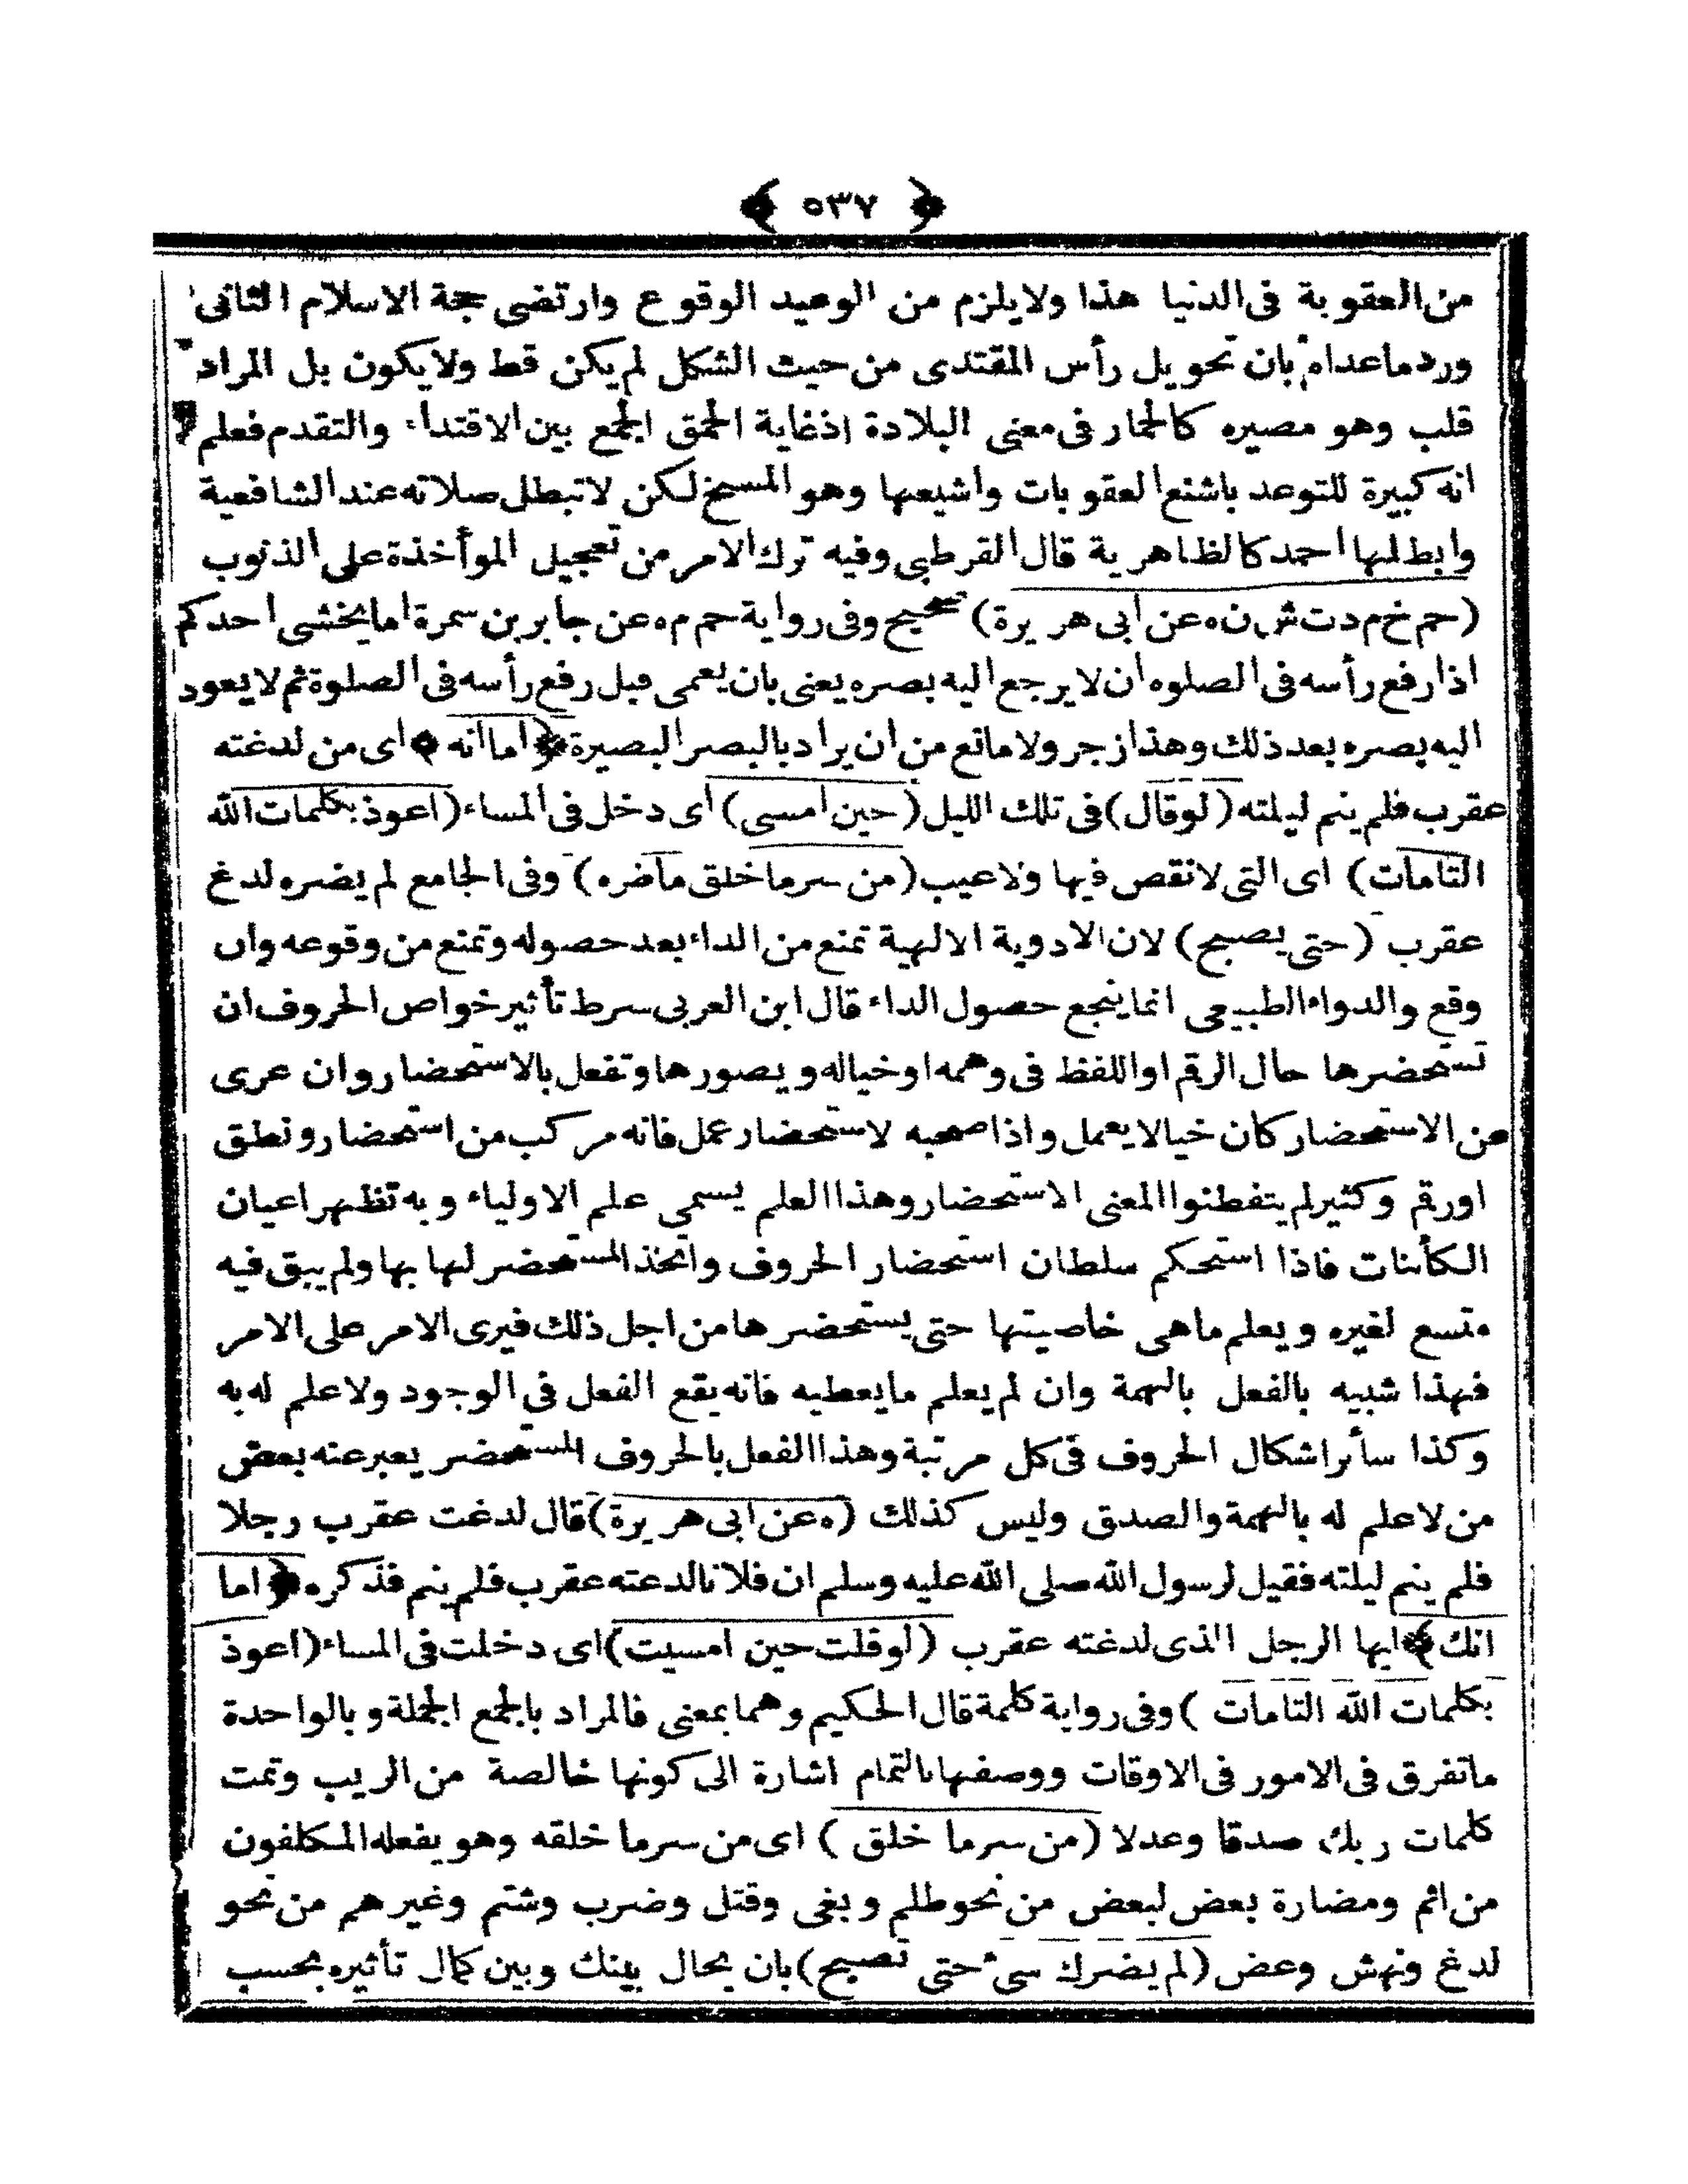 ﴿ ٥٣٧ ﴾
من العقوبة فى الدنيا هذا ولا يلزم من الوعيد الوقوع وارتضى حجة الاسلام الثانى
ورد ماعداه بان تحويل رأس المقتدى من حيث الشكل لم يكن قط ولا يكون بل المراد
قلب وهو مصيره كالحمار فى معنى البلادة اذ غاية الحمق الجمع بين الاقتداء والتقدم فعلم
انه كبيرة للتوعد باشنع العقوبات واشيعها وهو المسخ لكن لا تبطل صلاته عند الشافعية
وابطلها احمد كالظاهرية قال القرطبى وفيه ترك الامر من تعجيل الموأخذة على الذنوب
(حم خ م د ت ش ن ه عن ابى هريرة) صحيح وفى رواية حم م ه عن جابر بن سمرة اما يخشى احدكم
اذا رفع رأسه فى الصلوه ان لا يرجع اليه بصره يعنى بان يعمى قبل رفع رأسه فى الصلوة ثم لا يعود
اليه بصره بعد ذلك وهذا زجر ولا مانع من ان يراد بالبصر البصيرة ﴿ اما انه ﴾ اى من لدغته
عقرب فلم ينم ليلته (لو قال) فى تلك الليل (حين امسى) اى دخل فى المساء (اعوذ بكلمات الله
التامات) اى التى لا نقص فيها ولا عيب (من شر ما خلق ما ضره) وفى الجامع لم يضره لدغ
عقرب (حتى يصبح) لان الادوية الالهية تمنع من الداء بعد حصوله وتمنع من وقوعه وان
وقع والدواء الطبيعى انما ينجع حصول الداء قال ابن العربى شرط تأثير خواص الحروف ان
تستحضرها حال الرقم او اللفظ فى وهمه او خياله ويصورها وتفعل بالاستحضار وان عرى
عن الاستحضار كان خيالا يعمل واذا صحبه لاستحضار عمل فانه مركب من استحضار ونطق
او رقم وكثير لم يتفطنوا المعنى الاستحضار وهذا العلم يسمى علم الاولياء وبه تظهر اعيان
الكأئنات فاذا استحكم سلطان استحضار الحروف واتخذ المستحضر لها بها ولم يبق فيه
متسع لغيره ويعلم ماهى خاصيتها حتى يستحضرها من اجل ذلك فيرى الامر على الامر
فهذا شبيه بالفعل بالهمة وان لم يعلم ما يعطيه فانه يقع الفعل فى الوجود ولا علم له به
وكذا سأئر اشكال الحروف فى كل مرتبة وهذا الفعل بالحروف المستحضر يعبر عنه بعض
من لا علم له بالهمة والصدق وليس كذلك (ه عن ابى هريرة) قال لدغت عقرب رجلا
فلم ينم ليلته فقيل لرسول الله صلى الله عليه وسلم ان فلانا لدغته عقرب فلم ينم فذكره ﴿ اما
انك ﴾ ايها الرجل الذى لدغته عقرب (لو قلت حين امسيت) اى دخلت فى المساء (اعوذ
بكلمات الله التامات ) وفى رواية كلمة قال الحكيم وهما بمعنى فالمراد بالجمع الجملة وبالواحدة
ما تفرق فى الامور فى الاوقات ووصفها بالتمام اشارة الى كونها خالصة من الريب وتمت
كلمات ربك صدقا وعدلا (من شر ما خلق ) اى من شر ما خلقه وهو يفعله المكلفون
من اثم ومضارة بعض لبعض من نحو ظلم وبغى وقتل وضرب وشتم وغيرهم من نحو
لدغ ونهش وعض (لم يضرك شىء حتى تصبح) بان يحال بينك وبين كمال تأثيره بحسب